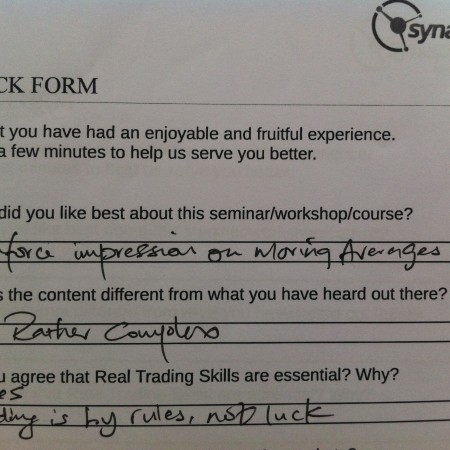 syna
CK FORM
t you have had an enjoyable and fruitful experience.
a few minutes to help us serve you better.
did you like best about this seminar/workshop/course?
force impression on Moving Averages
s the content different from what you have heard out there?
Rather
u agree that Real Trading Skills are essential? Why?
es
ding is by rules, not luck